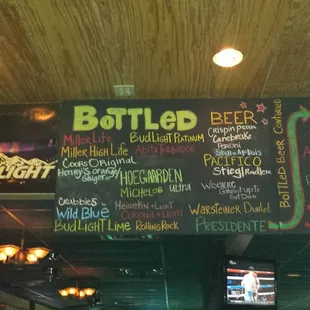 BOTTLED BEER
Miller Lite
Miller High Life
Coors Original
Henry's Orange
Ginger
Crabbies
Wild Blue
Bud Light Lime
Bud Light Platinum
Abita Turbodog
Hoegaarden
Michelob Ultra
Heineken + Light
Corona + Light
Rolling Rock
Crispin Pear
Canebrake
Peroni
Stella Artois
Pacifico
Stiegl Radler
Warsteiner Dunkel
Presidente
Bottled Beer Continued
LIGHT